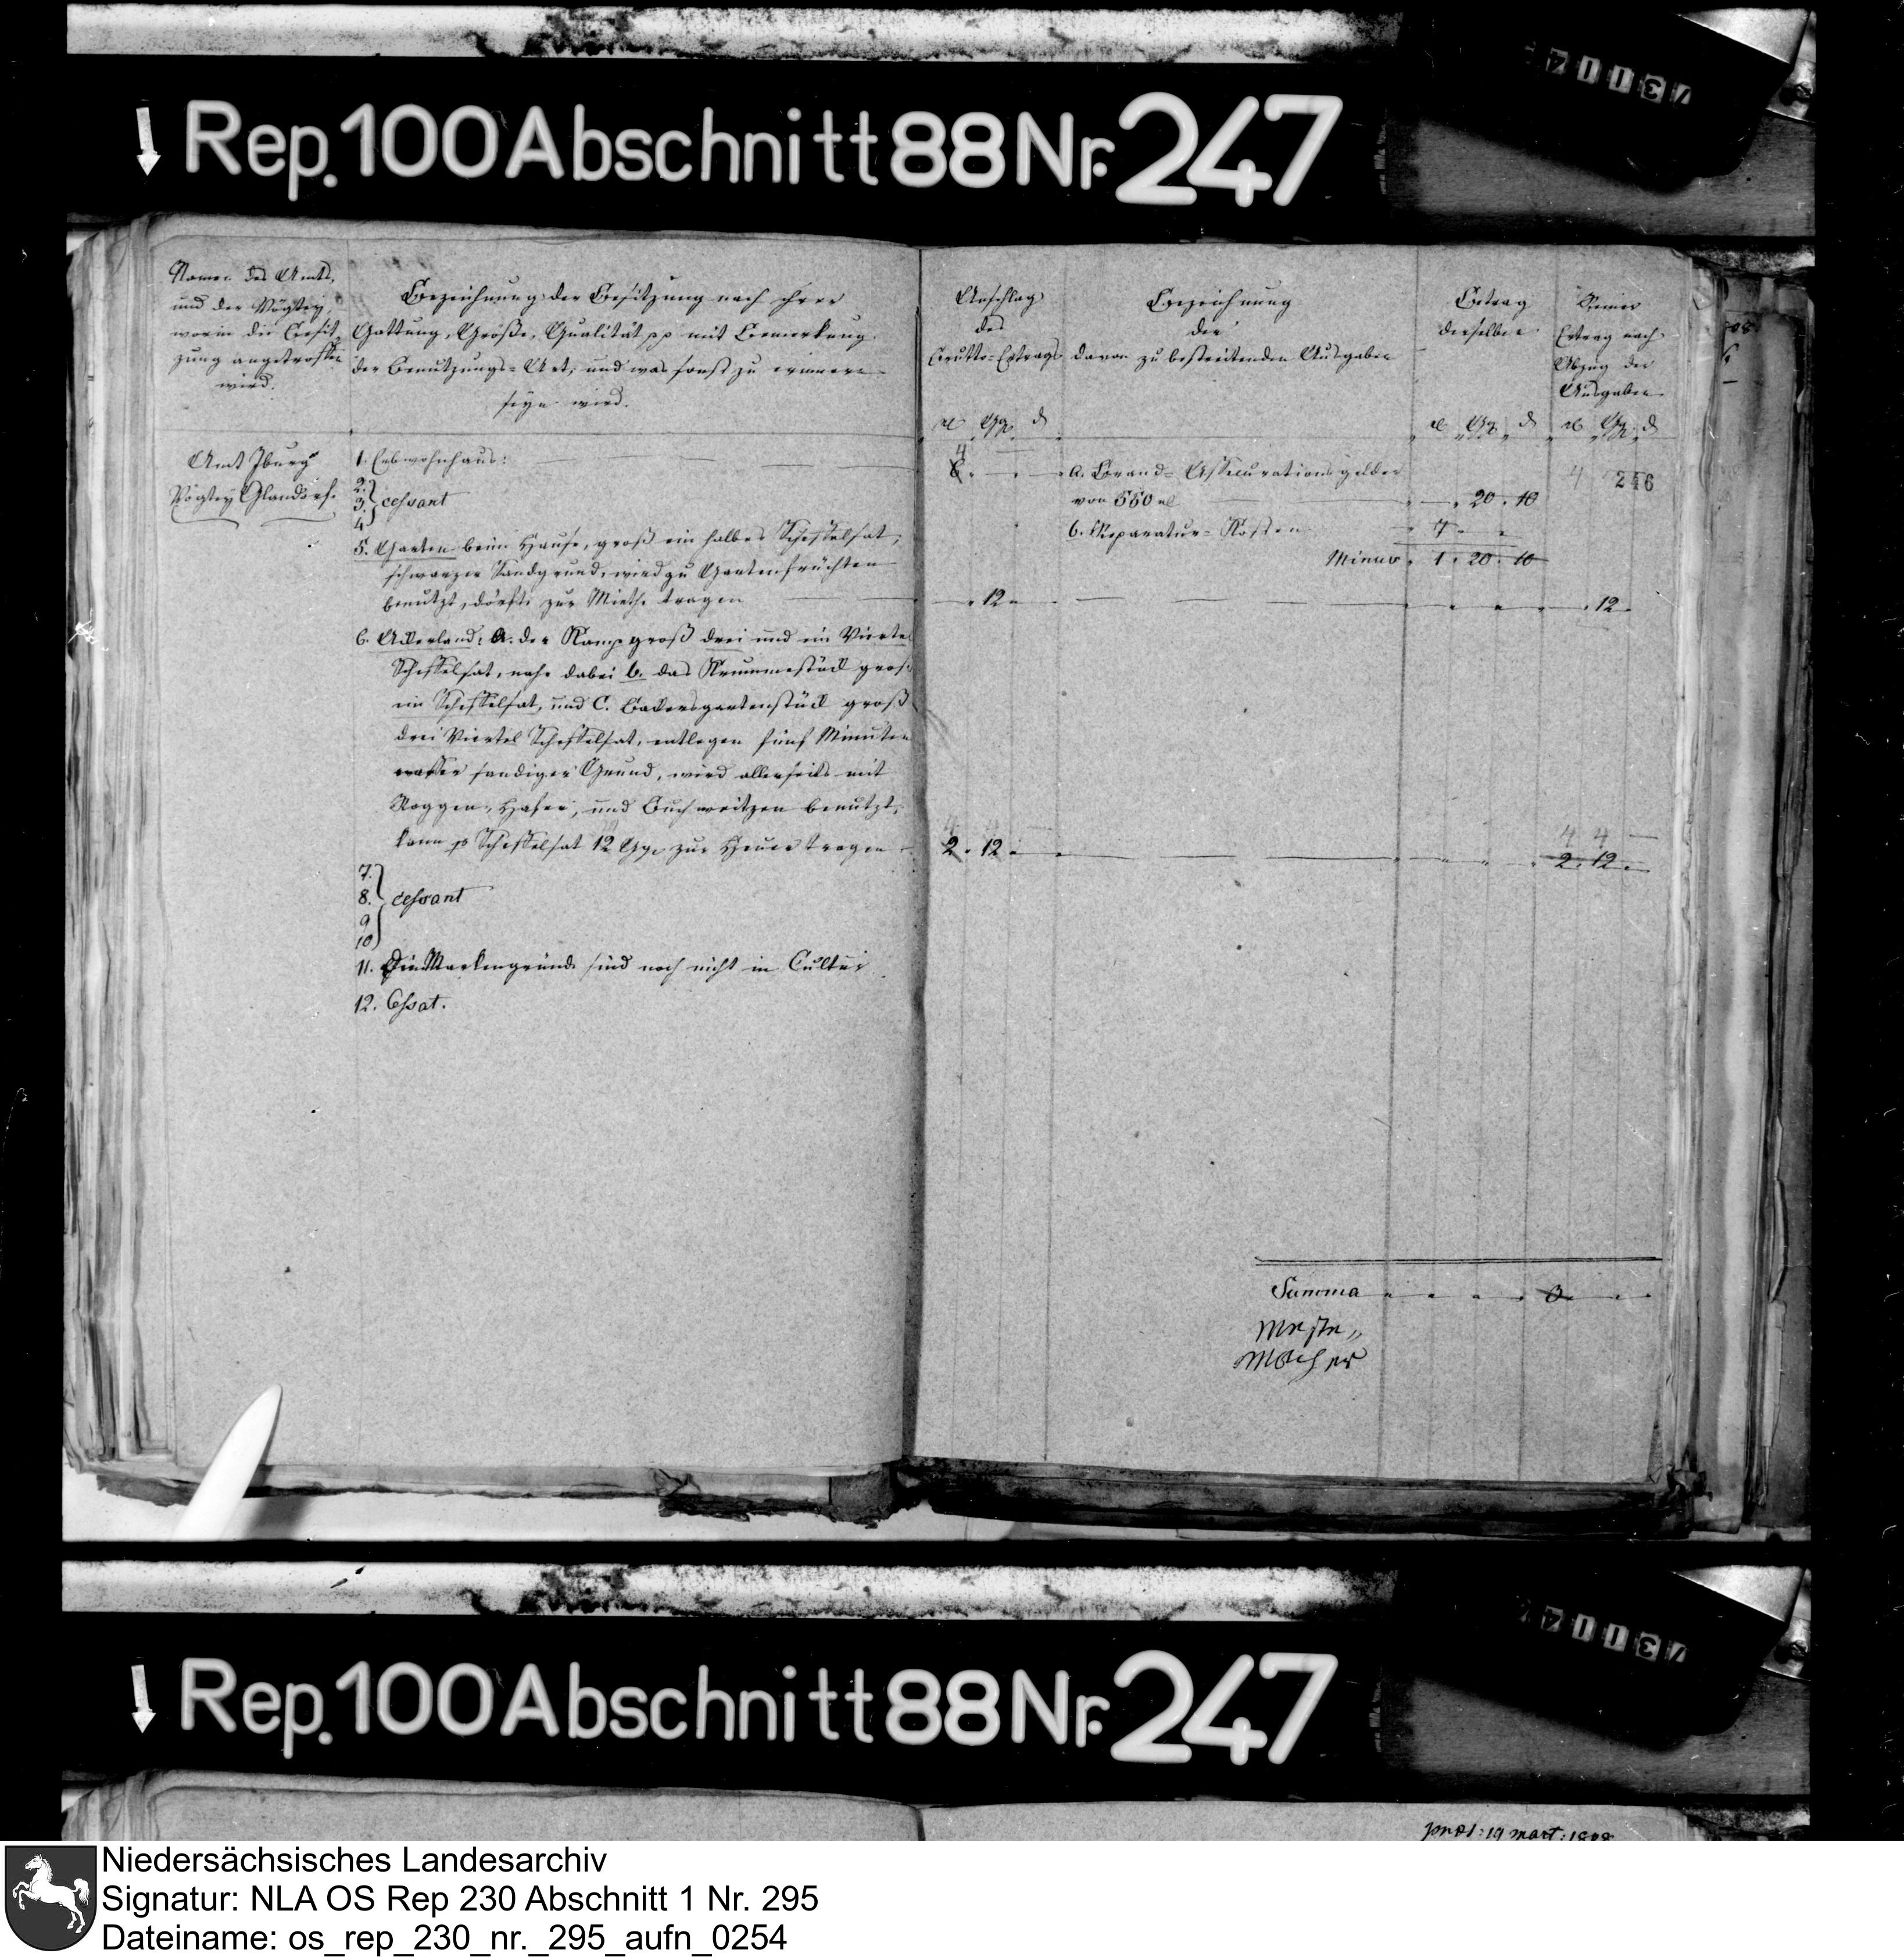 73114
Rep. 100 Abschnitt 88 Nr. 247
Namen des Amts,
und der Vogtey,
worin die Besit
zung angetroffen
wird.
Bezeichnung der Besitzung nach ihrer
Gattung, Größe, Qualität pp mit Bemerkung
der Benutzungs-Art, und was sonst zu erinnern
seyn wird.
Anschlag
des
Brutto-Ertrags
Bezeichnung
der
davon zu bestreitenden Ausgaben
Betrag
derselben
Reiner
Ertrag nach
Abzug der
Ausgaben
Amt Iburg
Vogtey Glandorf.
1. Erbwohnhaus:
4
a. Brand-Assecurationsgelder
von 550 rl
20. 10
4 246
2.
3. cessant
4
b. Reparatur-Kosten
Minus 1. 20. 10
5. Garten beim Hause, groß ein halbes Scheffelsat,
schwarzer Sandgrund, wird zu Gartenfrüchten
benutzt, dörfte zur Miethe tragen
12
12
6. Ackerland: a. der Kamp groß drei und ein Viertel
Scheffelsat, nahe dabei b. das Krummestück groß
ein Scheffelsat, und C. Backersgartenstück groß
drei Viertel Scheffelsat, entlegen fünf Minuten
sandiger Grund, wird allerseits mit
Roggen, Hafer, und Buchweitzen benutzt,
kann pr Scheffelsat 12 Ggr zur Heuer tragen
2. 12
4 4
2. 12
7.
8. cessant
9
10
11. Die Markengründe sind noch nicht in Cultur
12. Cessat.
Summa 0
Rep. 100 Abschnitt 88 Nr. 247
73114
Niedersächsisches Landesarchiv
Signatur: NLA OS Rep 230 Abschnitt 1 Nr. 295
Dateiname: os_rep_230_nr._295_aufn_0254